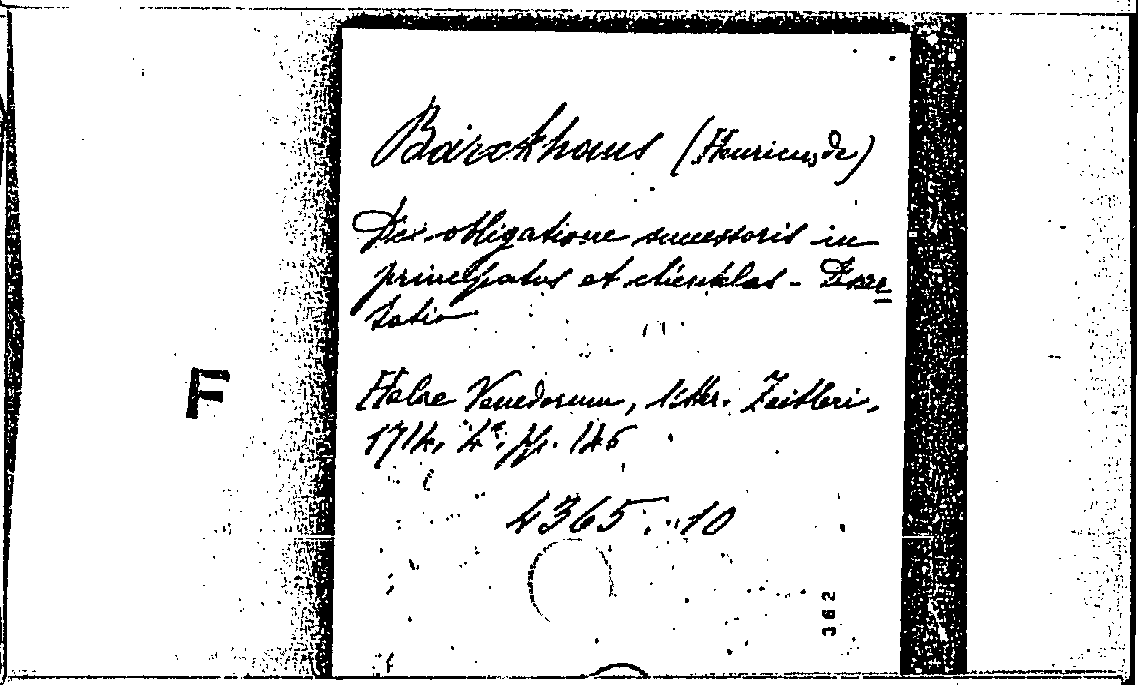 Barckhaus (Henricus, de)
De obligatione successoris in
principatus et clientelas - Disser
tatio
F
Halae Venedorum, litter. Zeitleri,
1714, 4º, pp. 146
4365.10
362